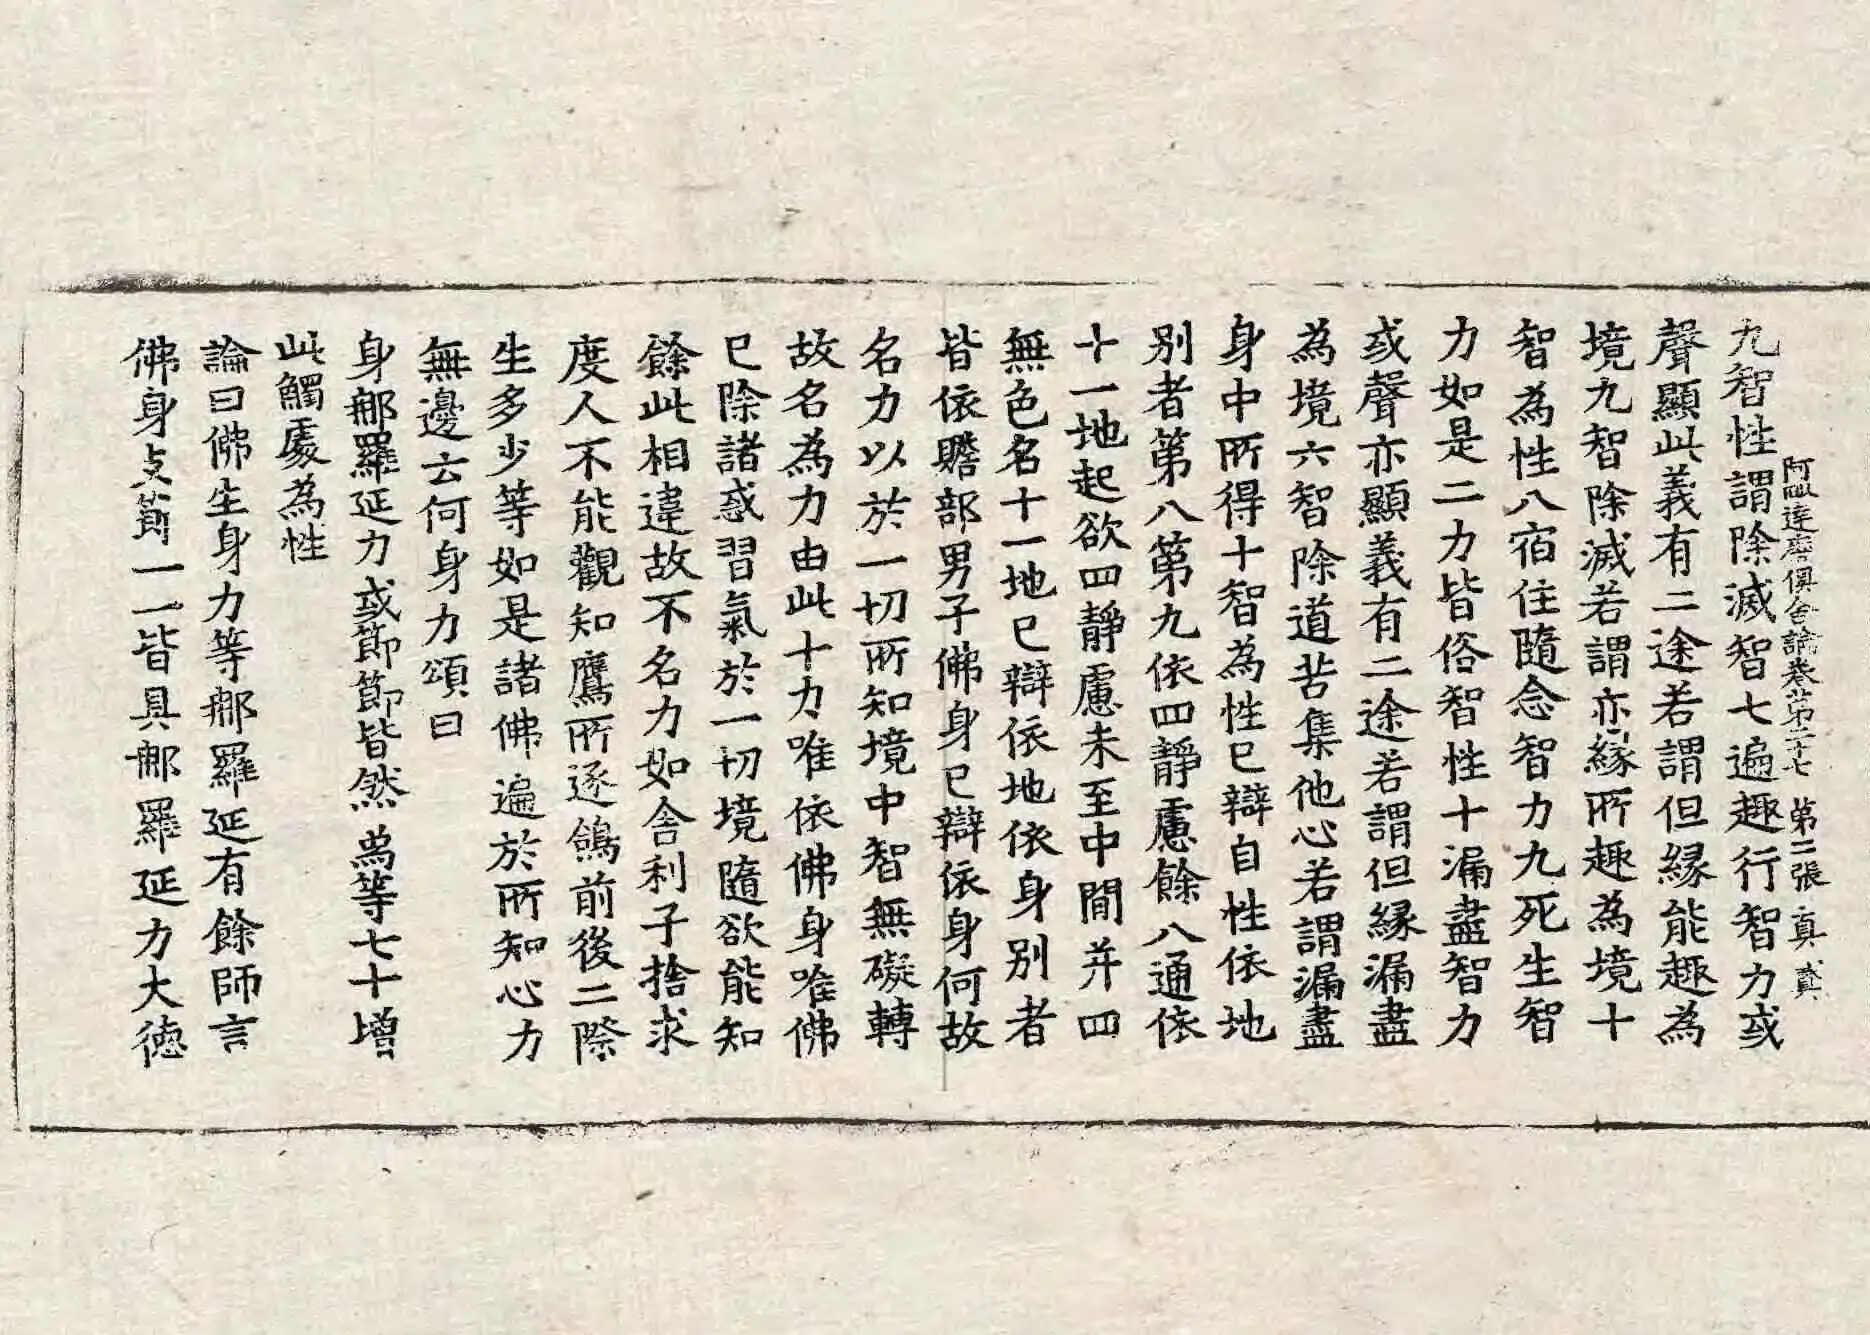 阿毗達磨俱舍論卷第二十七 第二張 真
九智性謂除滅智七遍趣行智力或
聲顯此義有二途若謂但緣能趣為
境九智除滅若謂亦緣所趣為境十
智為性八宿住隨念智力九死生智
力如是二力皆俗智性十漏盡智力
或聲亦顯義有二途若謂但緣漏盡
為境六智除道苦集他心若謂漏盡
身中所得十智為性已辯自性依地
別者第八第九依四靜慮餘八通依
十一地起欲四靜慮未至中間并四
無色名十一地已辯依地依身別者
皆依贍部男子佛身已辯依身何故
名力以於一切所知境中智無礙轉
故名為力由此十力唯依佛身唯佛
已除諸惑習氣於一切境隨欲能知
餘此相違故不名力如舍利子捨求
度人不能觀知鷹所逐鴿前後二際
生多少等如是諸佛遍於所知心力
無邊云何身力頌曰
身那羅延力或節節皆然為等七十增
此觸處為性
論曰佛生身力等那羅延有餘師言
佛身支節一一皆具那羅延力大德